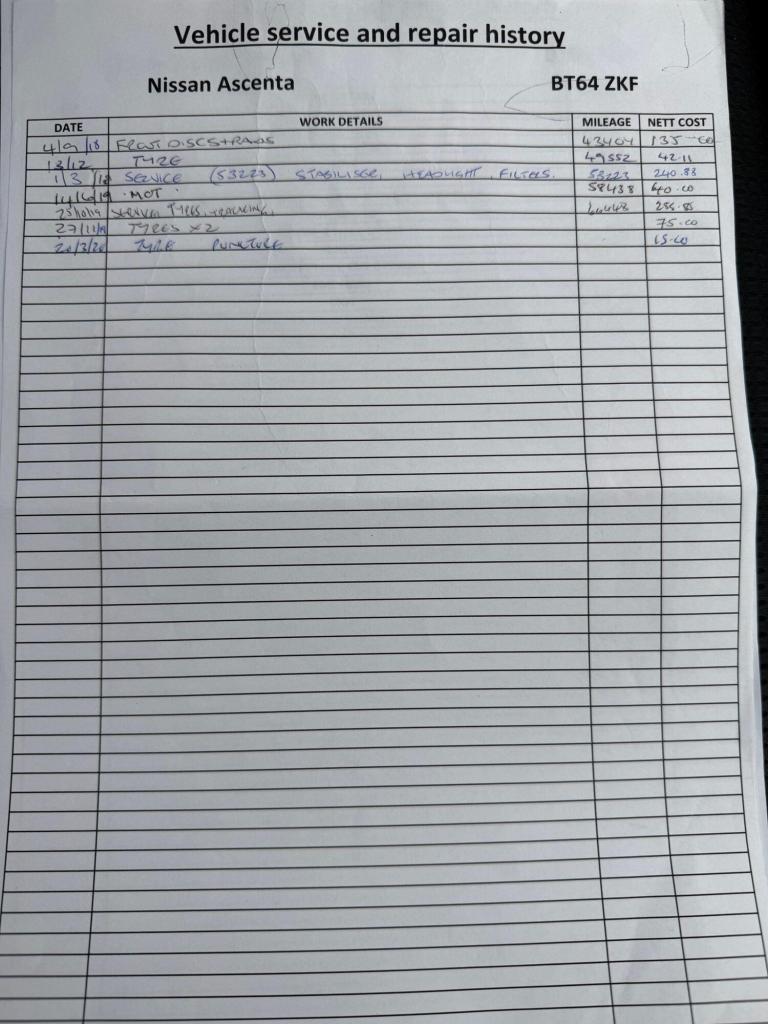 Vehicle service and repair history
Nissan Ascenta BT64 ZKF
DATE WORK DETAILS MILEAGE NETT COST
4/9/18 FRONT DISCS + PADS 43404 135-00
13/12 TYRE 49552 42.11
1/3/18 SERVICE (53223) STABILISER, HEADLIGHT, FILTERS. 53223 240.83
14/6/19 MOT 58438 40.00
SERVICE TYRES, TRACKING,
27/11/19 TYRES x2 75.00
20/3/20 TYRE PUNCTURE 15.00